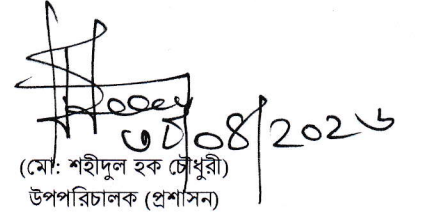 ৩০/০৪/২০২৬
(মো: শহীদুল হক চৌধুরী)
উপপরিচালক (প্রশাসন)